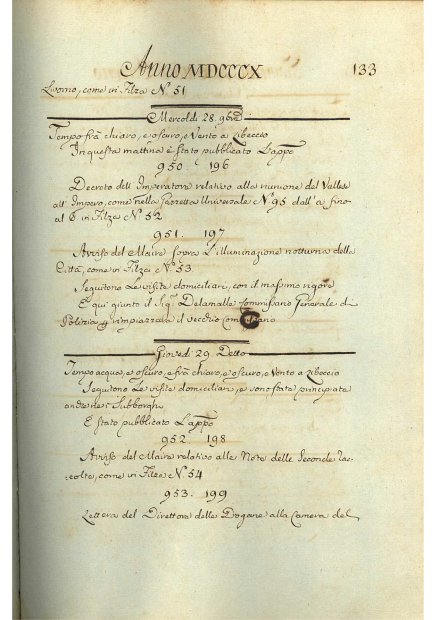 Anno MDCCCX 133
Livorno, come in Filza N.° 51
Mercoldì 28. 9bre
Tempo frà chiaro, e oscuro, e Vento a Libeccio
In questa mattina è stato pubblicato L'appo
950 196
Decreto dell'Imperatore relativo alla riunione del Vallese
all'Impero, come nella Gazzetta Universale N.° 95 dall'a fino
al 6 in Filza N.° 52
951. 197
Avviso del Maire sopra l'illuminazione notturna della
Città, come in Filza N.° 53.
Seguitono Le visite domiciliari, con il massimo rigore
È qui giunto il Sig. Delamalle Commissario Generale di
Polizia p rimpiazzare il vecchio
Giovedì 29. Detto
Tempo acqua, e oscuro, e frà chiaro, e oscuro, e Vento a Libeccio
Seguitono Le visite domiciliari, e sono state principiate
anche ne' Subborghi
È stato pubblicato L'appo
952. 198
Avviso del Maire relativo alle Note delle Seconde rac-
colte, come in Filza N.° 54
953. 199
Lettera del Direttore delle Dogane alla Camera del